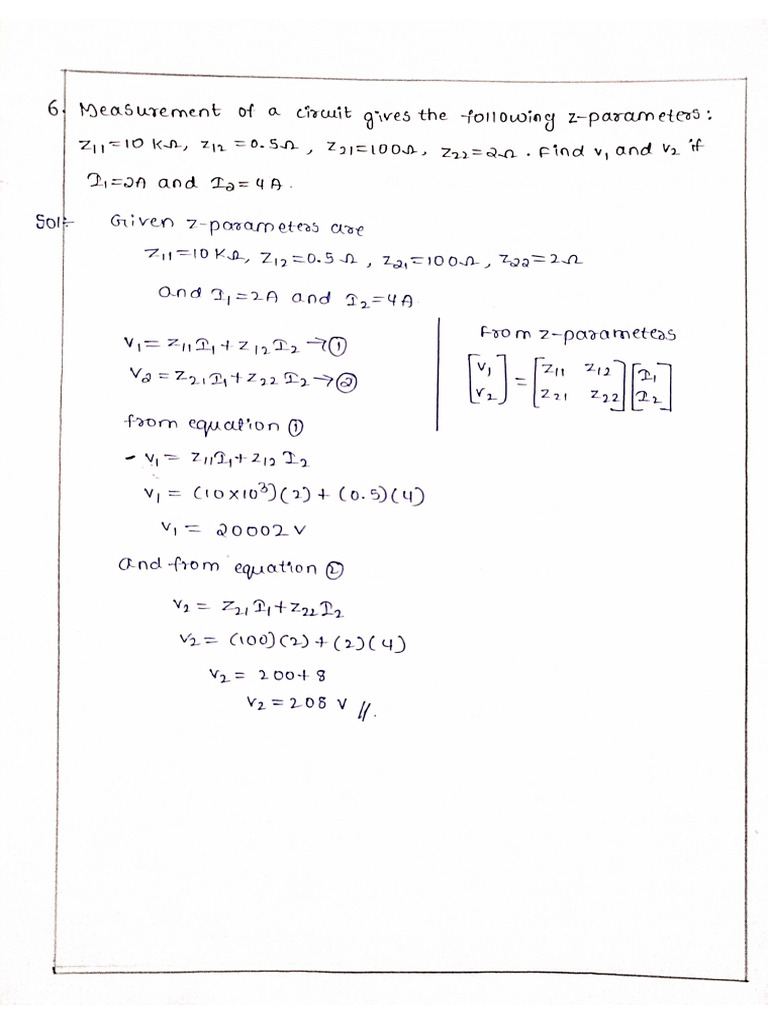 6. Measurement of a circuit gives the following z-parameters:
Z11=10 KΩ, Z12=0.5Ω, Z21=100Ω, Z22=2Ω. Find V1 and V2 if
I1=2A and I2=4A.
Sol:- Given z-parameters are
Z11=10KΩ, Z12=0.5Ω, Z21=100Ω, Z22=2Ω
and I1=2A and I2=4A.
V1= Z11I1+Z12I2 →①
V2= Z21I1+Z22I2 →②
From z-parameters
[V1 V2] = [Z11 Z12 Z21 Z22] [I1 I2]
from equation ①
- V1 = Z11I1+Z12I2
V1 = (10×10³)(2) + (0.5)(4)
V1 = 20002 V
and from equation ②
V2 = Z21I1+Z22I2
V2 = (100)(2)+(2)(4)
V2 = 200+8
V2 = 208 V //.